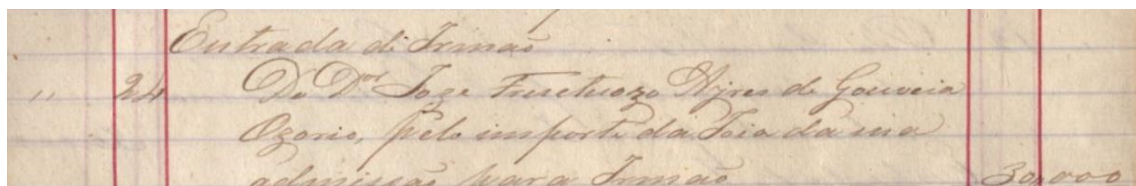 Entrada de Irmão
" 24 Do Dor Joze Fructuozo Ayres de Gouveia
Ozorio, pelo importe da Joia da sua
admissão para Irmão 30,000